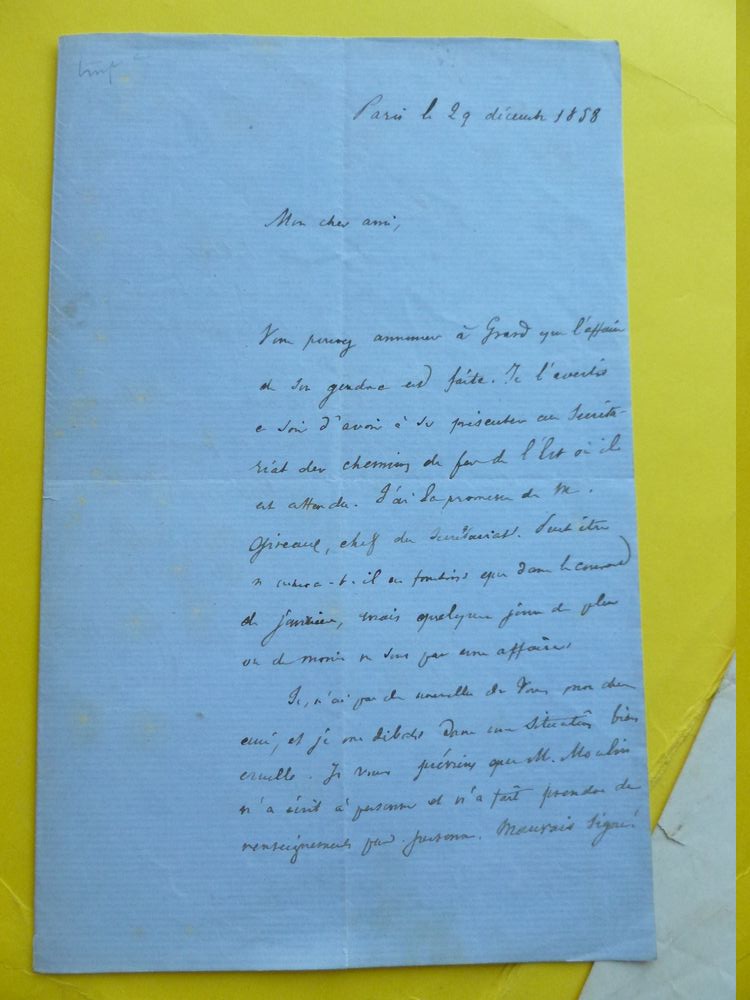 Paris le 29 décembre 1858
Mon cher ami,
Vous pouvez annoncer à Grard que l'affaire
de son gendre est faite. Je l'avertis
soin d'avoir à se présenter au Secréta-
riat des chemins de fer de l'Est où il
est attendu. J'ai la promesse de M.
chef du Secrétariat. Peut être
n'entrera-t-il en fonctions que dans le courant
de janvier, mais quelques jours de plus
ou de moins ne sont pas une affaire.
Je n'ai pas de nouvelles de vous mon cher
ami, et je me débats dans une situation bien
cruelle. Je vous préviens que M. Moulin
n'a écrit à personne et n'a fait prendre de
renseignements par personne. Mauvais signe!